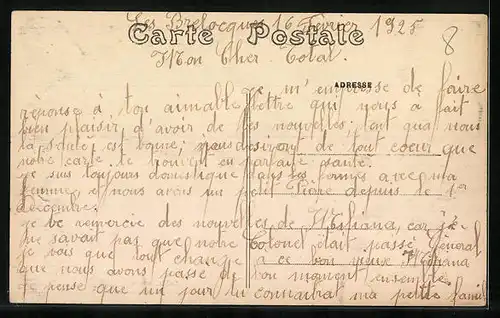 Les Brelocques 16 Février 1925
Carte Postale
8
Mon Cher Tobal.
ADRESSE
je m'empresse de faire
réponse à ton aimable lettre qui nous a fait
bien plaisir d'avoir de tes nouvelles; tant qua nous
la santé est bonne, nous desirons de tout coeur que
notre carte te trouve en parfaite santé.
je suis toujours domestique dans les fermes avec ma
femme, et nous avons un petit Pierre depuis le 1er
Décembre.
je te remercie des nouvelles de Miliana, car je
ne savait pas que notre Colonel était passé Général
je vois que tout change a ce bon vieux Miliana
que nous avons passé de bon moment ensemble.
je pense que un jour tu connaitrat ma petite famil